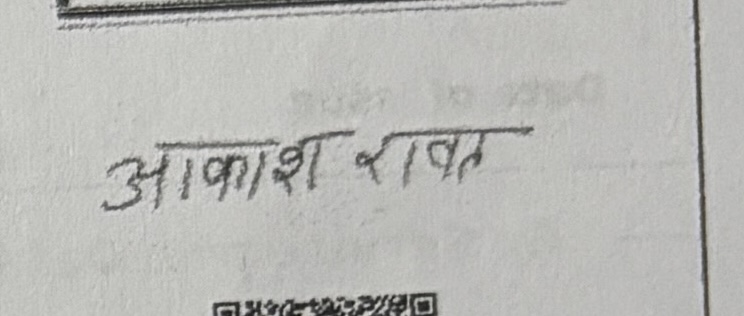 आकाश रावत